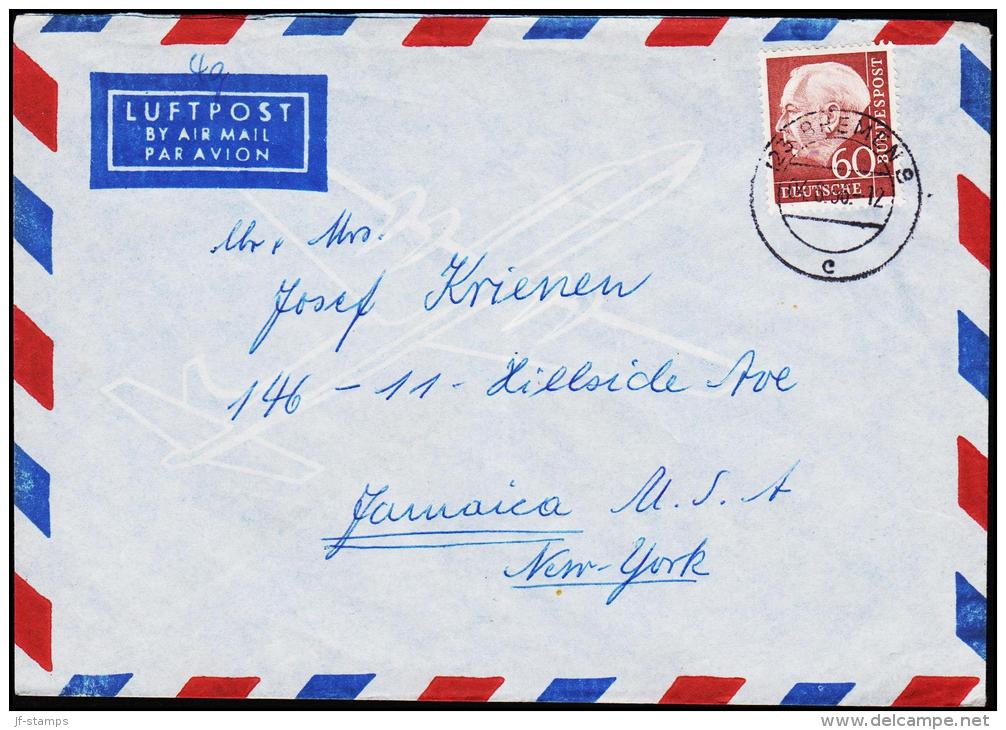 4g
LUFTPOST
BY AIR MAIL
PAR AVION
60
DEUTSCHE
BUNDESPOST
(23) BREMEN 9
12
c
Mr & Mrs.
Josef Krienen
146-11- Hillside Ave
Jamaica U.S.A
New-York
jf-stamps
www.delcampe.net